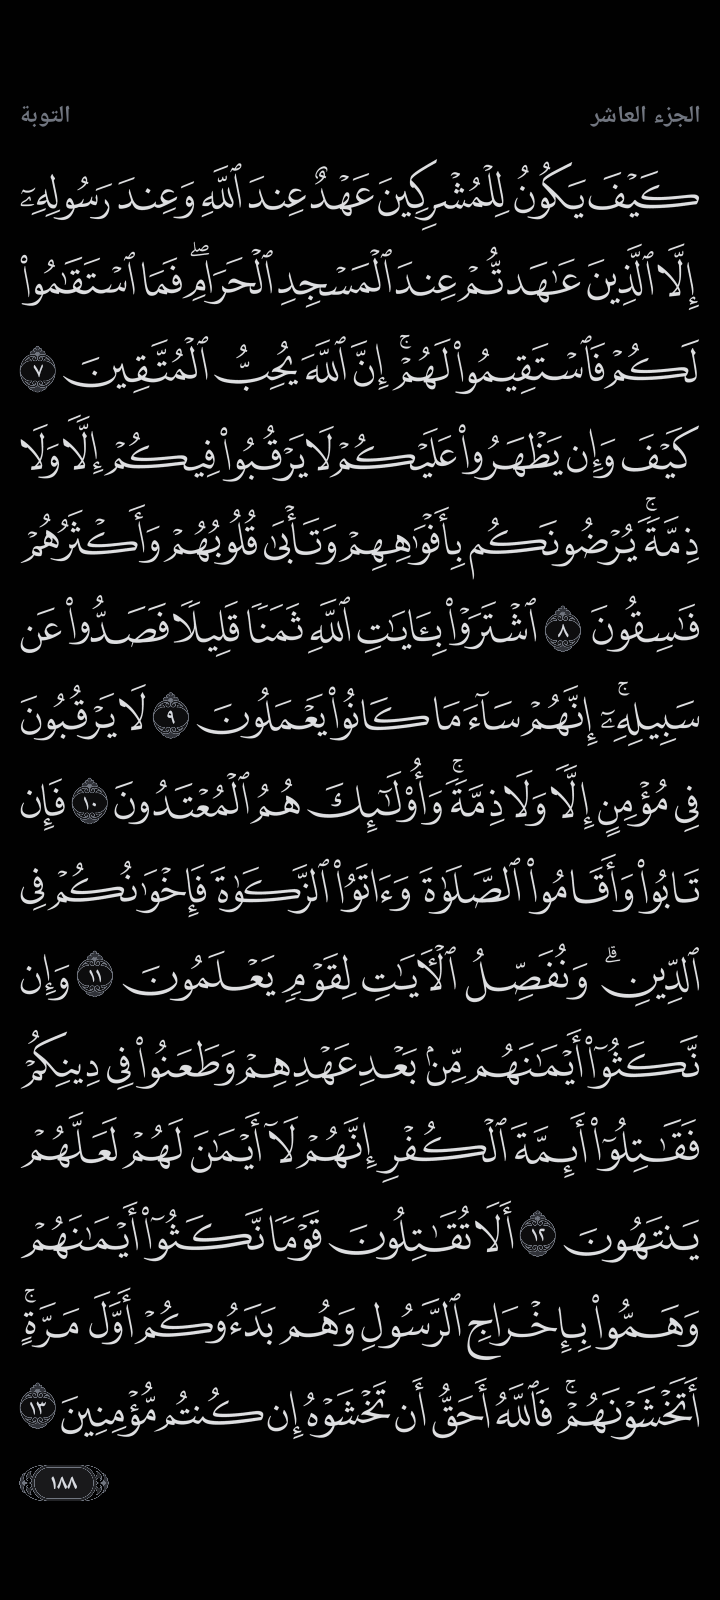 الجزء العاشر التوبة
كَيْفَ يَكُونُ لِلْمُشْرِكِينَ عَهْدٌ عِندَ ٱللَّهِ وَعِندَ رَسُولِهِۦٓ
إِلَّا ٱلَّذِينَ عَٰهَدتُّمْ عِندَ ٱلْمَسْجِدِ ٱلْحَرَامِۖ فَمَا ٱسْتَقَٰمُوا۟
لَكُمْ فَٱسْتَقِيمُوا۟ لَهُمْۚ إِنَّ ٱللَّهَ يُحِبُّ ٱلْمُتَّقِينَ ٧
كَيْفَ وَإِن يَظْهَرُوا۟ عَلَيْكُمْ لَا يَرْقُبُوا۟ فِيكُمْ إِلًّا وَلَا
ذِمَّةًۚ يُرْضُونَكُم بِأَفْوَٰهِهِمْ وَتَأْبَىٰ قُلُوبُهُمْ وَأَكْثَرُهُمْ
فَٰسِقُونَ ٨ ٱشْتَرَوْا۟ بِـَٔايَٰتِ ٱللَّهِ ثَمَنًا قَلِيلًا فَصَدُّوا۟ عَن
سَبِيلِهِۦٓۚ إِنَّهُمْ سَآءَ مَا كَانُوا۟ يَعْمَلُونَ ٩ لَا يَرْقُبُونَ
فِى مُؤْمِنٍ إِلًّا وَلَا ذِمَّةًۚ وَأُو۟لَٰٓئِكَ هُمُ ٱلْمُعْتَدُونَ ١٠ فَإِن
تَابُوا۟ وَأَقَامُوا۟ ٱلصَّلَوٰةَ وَءَاتَوُا۟ ٱلزَّكَوٰةَ فَإِخْوَٰنُكُمْ فِى
ٱلدِّينِۗ وَنُفَصِّلُ ٱلْـَٔايَٰتِ لِقَوْمٍ يَعْلَمُونَ ١١ وَإِن
نَّكَثُوٓا۟ أَيْمَٰنَهُم مِّنۢ بَعْدِ عَهْدِهِمْ وَطَعَنُوا۟ فِى دِينِكُمْ
فَقَٰتِلُوٓا۟ أَئِمَّةَ ٱلْكُفْرِ إِنَّهُمْ لَآ أَيْمَٰنَ لَهُمْ لَعَلَّهُمْ
يَنتَهُونَ ١٢ أَلَا تُقَٰتِلُونَ قَوْمًا نَّكَثُوٓا۟ أَيْمَٰنَهُمْ
وَهَمُّوا۟ بِإِخْرَاجِ ٱلرَّسُولِ وَهُم بَدَءُوكُمْ أَوَّلَ مَرَّةٍۚ
أَتَخْشَوْنَهُمْۚ فَٱللَّهُ أَحَقُّ أَن تَخْشَوْهُ إِن كُنتُم مُّؤْمِنِينَ ١٣
١٨٨